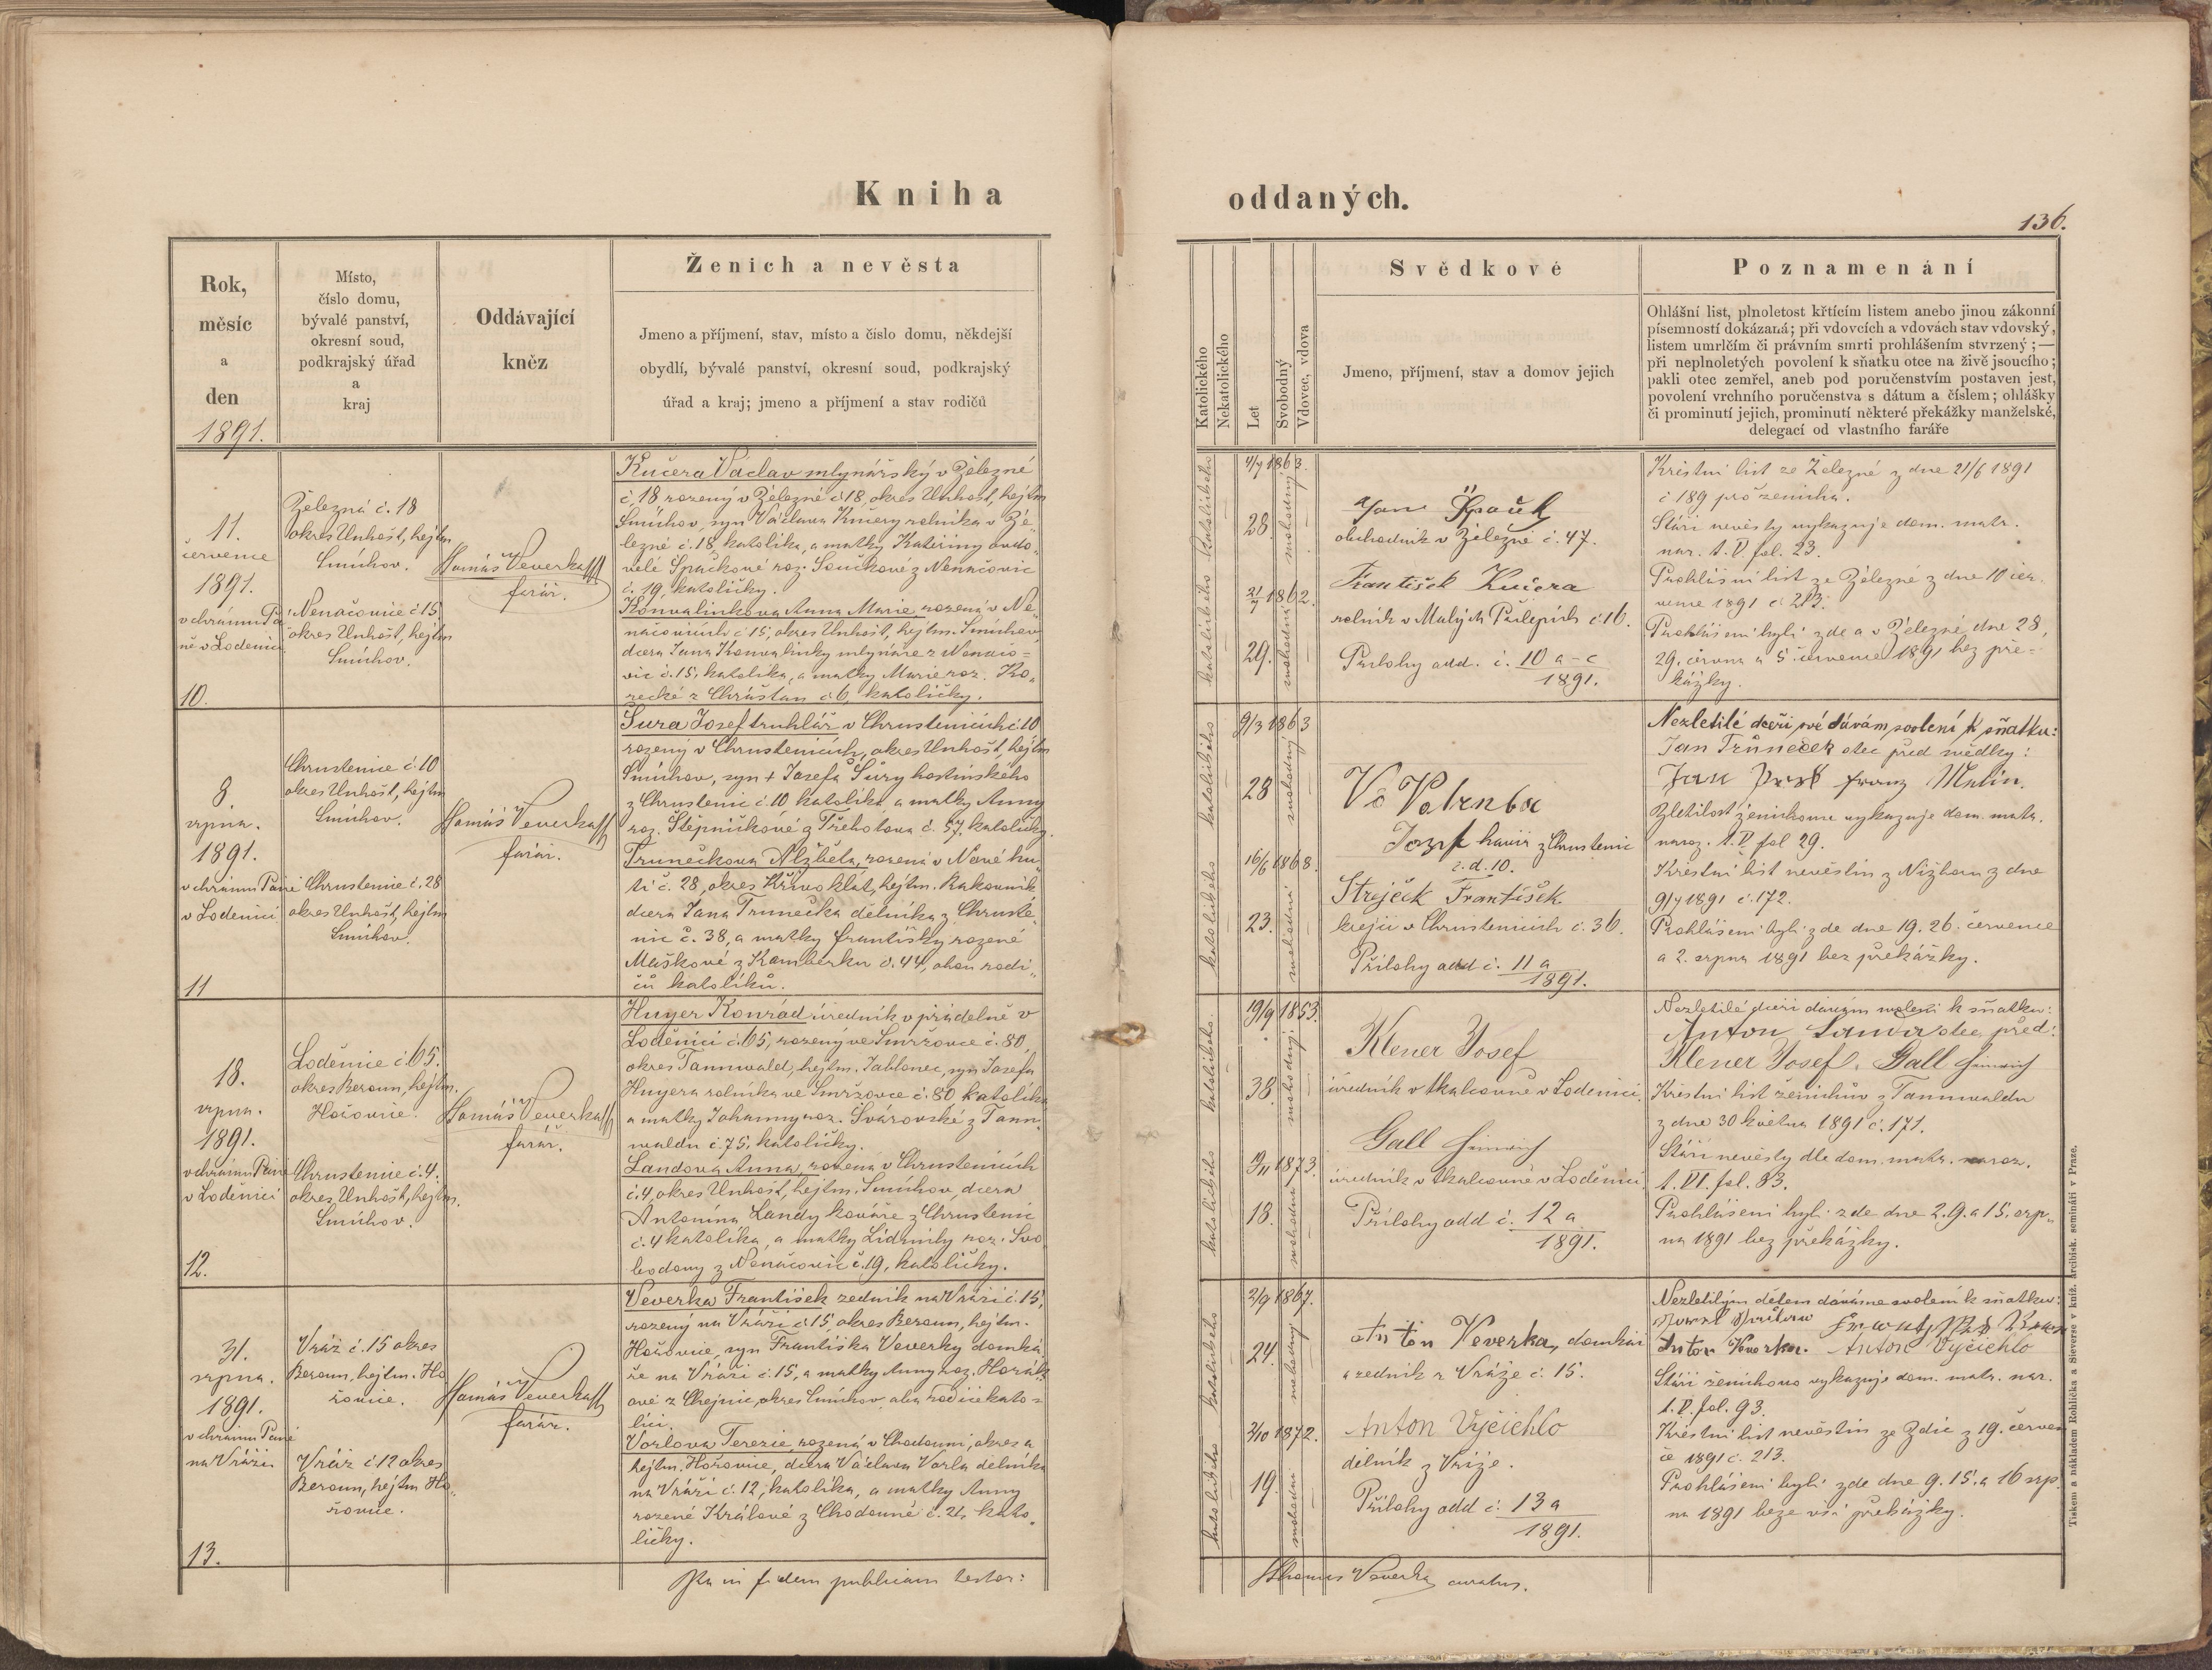 Kniha
oddaných.
136.
Rok,
měsíc
a
den
1891.
Místo,
číslo domu,
bývalé panství,
okresní soud,
podkrajský úřad
a
kraj
Oddávající
kněz
Ženich a nevěsta
Jmeno a příjmení, stav, místo a čislo domu, někdejší
obydlí, bývalé panství, okresní soud, podkrajský
úřad a kraj; jmeno a příjmení a stav rodičů
Katolického
Nekatolického
Let
Svobodný
Vdovec, vdova
Svědkové
Jmeno, příjmení, stav a domov jejich
Poznamenání
Ohlášní list, plnoletost křtícím listem anebo jinou zákonní
písemností dokázaná; při vdovcích a vdovách stav vdovský,
listem umrlčím či právním smrti prohlášením stvrzený; —
při neplnoletých povolení k sňatku otce na živě jsoucího;
pakli otec zemřel, aneb pod poručenstvím postaven jest,
povolení vrchního poručenstva s dátum a číslem; ohlášky
či prominutí jejich, prominutí některé překážky manželské,
delegací od vlastního faráře
11.
července
1891.
v chrámu Pá
ně v Loděnici
10.
Železná č. 18
okres Unhošť, hejtm.
Smíchov.
Nenačovice č 15,
okres Unhošť, hejtm
Smíchov.
Tomáš Veverka
farář.
Kučera Václav mlynářský v Železné
č. 18, rozený v Železné č 18, okres Unhošť, hejtm
Smíchov, syn Václava Kučery rolníka v Že-
lezné č. 18, katolíka, a matky Kateřiny ovdo-
vělé Špačkové roz. Součkové z Nenačovic
č. 19, katoličky.
Konvalinkova Anna Marie rozená v Ne-
načovicích č 15, okres Unhošť, hejtm. Smíchov,
dcera Jana Konvalinky mlynáře z Nenačo=
vic č. 15, katolíka, a matky Marie roz. Ko-
recké z Chrášťan č 6, katoličky.
4/7 1863.
28.
katolického
svobodný
1862.
29.
katolického
svobodná
Jan Špaček
obchodník v Železné č. 47.
František Kučera
rolník v Malých Přílepích č 16.
Přílohy odd. č. 10 a-c
1891.
Křestní list ze Železné z dne 21/6 1891
č 189 pro ženicha.
Stáří nevěsty vykazuje dom. matr.
nar. t. V. fol. 23.
Prohlášní list ze Železné z dne 10 čer-
vence 1891 č 213.
Prohlášeni byli zde a v Železné dne 28,
29. června a 5 července 1891 bez pře=
kážky.
8.
srpna.
1891.
v chrámu Páně
v Loděnici
11
Chrustenice č. 10
okres Unhošť, hejtm
Smíchov.
Chrustenice č. 28
okres Unhošť, hejtm
Smíchov.
Tomáš Veverka
farář.
Šura Josef truhlář v Chrustenicích č. 10
rozený v Chrustenicích, okres Unhošť, hejtm
Smíchov, syn + Josefa Šůry hostinského
z Chrustenic č. 10, katolíka, a matky Anny
roz. Štěpničkové z Třebotova č. 57, katoličky.
Trunečkova Alžběta, rozená v Nové hu-
ti č. 28, okres Křivoklát, hejtm. Rakovník
dcera Jana Trunečka dělníka z Chruste-
nic č. 38, a matky Františky rozené
Maškové z Kamberku č. 44, obou rodi-
čů katolíků.
9/3 1863
28
katolického
svobodný
16/6 1868.
23.
katolického
svobodná
Petrnba
Josef havíř z Chrustenic
č. d. 10.
Strejček František
krejčí v Chrustenicích č. 36.
Přílohy odd č. 11 a
1891.
Nezletilé dceři své dávám svolení k sňatku:
Jan Trůneček otec před svědky:
Jan Franz Malin.
Zletilost ženichova vykazuje dom. matr.
naroz. t. V. fol 29.
Křestní list nevěstin z Nižboru z dne
9/7 1891 č. 172.
Prohlášeni byli zde dne 19. 26. července
a 2. srpna 1891 bez překážky.
18.
srpna.
1891.
v chrámu Páně
v Loděnici
12.
Loděnice č 65.
okres Beroun, hejtm.
Hořovice.
Chrustenice č. 4.
okres Unhošť, hejtm.
Smíchov.
Tomáš Veverka
farář.
Huyer Konrád úředník v přádelně v
Loděnici č. 65, rozený ve Smržovce č. 80,
okres Tannwald, hejtm. Jablonec, syn Josefa
Huyera rolníka ve Smržovce č. 80 katolíka
a matky Johanny roz. Švárovské z Tann-
waldu č. 75, katoličky.
Landova Anna, rozená v Chrustenicích
č. 4, okres Unhošť, hejtm. Smíchov, dcera
Antonína Landy kováře z Chrustenic
č. 4 katolíka, a matky Lidmily roz. Svo-
bodovy z Nenačovic č. 19, katoličky.
19/9 1853.
38.
katolického.
svobodný.
19/11 1873.
18.
katolického
svobodná
Klener Josef
úředník v tkalcovně v Lodenici,
Gall Heinrich
úředník v tkalcovně v Loděnici.
Přílohy odd č. 12 a
1891.
Nezletilé dceři dávám svolení k sňatku:
Anton Landa otec před:
Klener Josef. Gall Heinrich
Křestní list ženichův z Tannwaldu
z dne 30 května 1891 č. 171.
Stáří nevěsty dle dom. matr. naroz.
t. VI. fol. 83.
Prohlášeni byli zde dne 2. 9. a 15. srp-
na 1891 bez překážky.
31.
srpna.
1891.
v chrámu Páně
na Vráži.
13.
Vráž č. 15 okres
Beroun, hejtm. Ho
řovice.
Vráž č 12 okres
Beroun, hejtm Ho-
řovice.
Tomáš Veverka
farář.
Veverka František zedník na Vráži č. 15,
rozený na Vráži č 15, okres Beroun, hejtm.
Hořovice, syn Františka Veverky domká-
ře na Vráži č. 15, a matky Anny roz. Horálk
ové z Chejnic, okres Smíchov, oba rodiče kato=
líci.
Vorlova Terezie rozená v Chodouni, okres a
hejtm. Hořovice, dcera Václava Vorla dělníka
na Vráži č. 12, katolíka, a matky Anny
rozené Králové z Chodouně č. 21, kato-
ličky.
2/9 1867.
24.
katolického
svobodný
1872.
19.
katolického
svobodná
Anton Veverka, domkář
a zedník z Vráže č. 15.
Anton Vyčichlo
dělník z Vráže.
Přílohy odd č. 13 a
1891.
Nezletilým dětem dáváme svolení k sňatku:
Anton Veverka. Anton Vyčichlo
Stáří ženichovo vykazuje dom. matr. nar.
t. V. fol. 93.
Křestní list nevěstin ze Zdic z 19. červen
ce 1891 č. 213.
Prohlášeni byli zde dne 9. 15. a 16 srp-
na 1891 beze vší překážky.
Ita in fidem publicam testor:
Thomas Veverka curatus.
Tiskem a nákladem Rohlíčka a Sieverse v kníž. arcibisk. semináři v Praze.